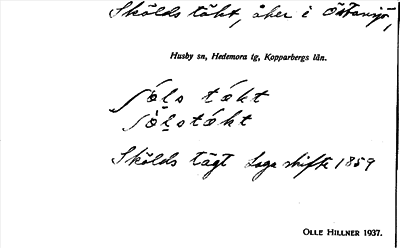 Skölds täkt, åker i Östansjö,
Husby sn, Hedemora tg, Kopparbergs län.
täkt
Skölds tägt Laga skifte 1859
OLLE HILLNER 1937.